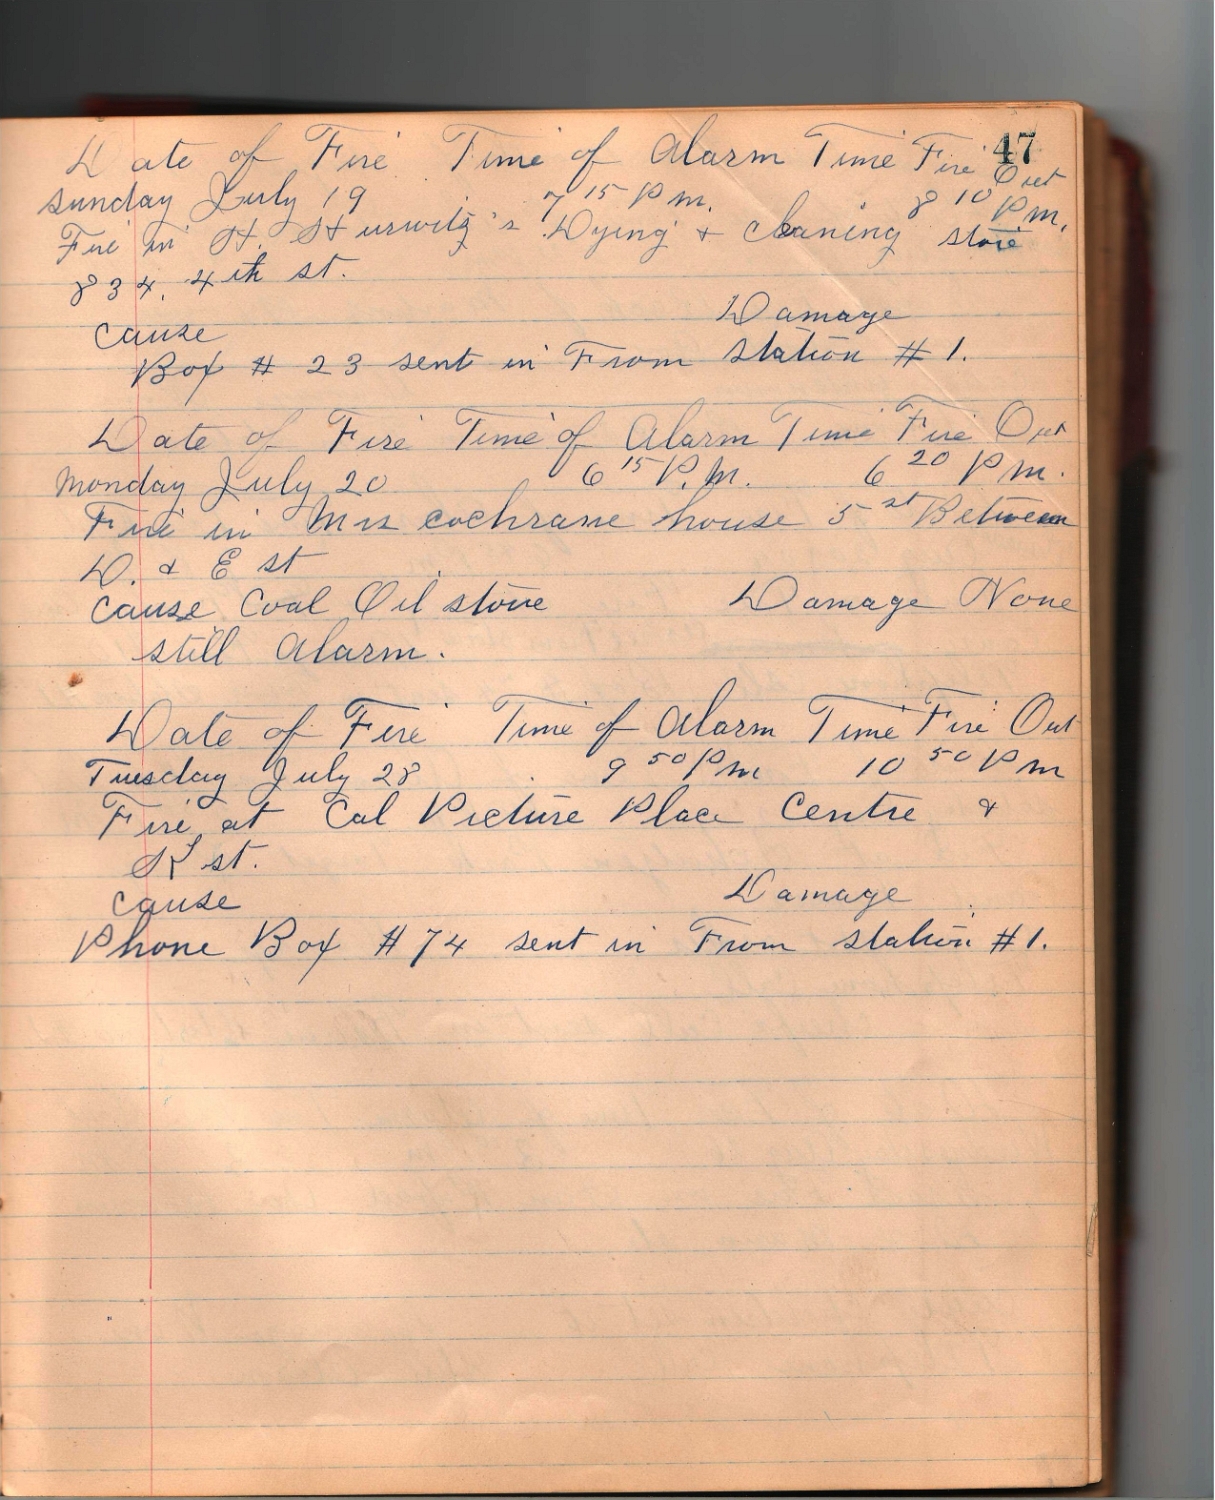 47
Date of Fire Time of Alarm Time Fire Out
Sunday July 19 7 15 P m. 8 10 P m.
Fire in H. Hurwitz's Dying + cleaning store
834, 4th st.
cause Damage
Box # 23 sent in From station # 1.
Date of Fire Time of Alarm Time Fire Out
Monday July 20 6 15 P. M. 6 20 P m.
Fire in Mrs cochrane house 5 st Between
D. & E st
cause Coal Oil stove Damage None
still Alarm.
Date of Fire Time of Alarm Time Fire Out
Tuesday July 28 9 50 P m 10 50 P m
Fire at Cal Picture Place Centre &
K st.
cause Damage
Phone Box # 74 sent in From station # 1.